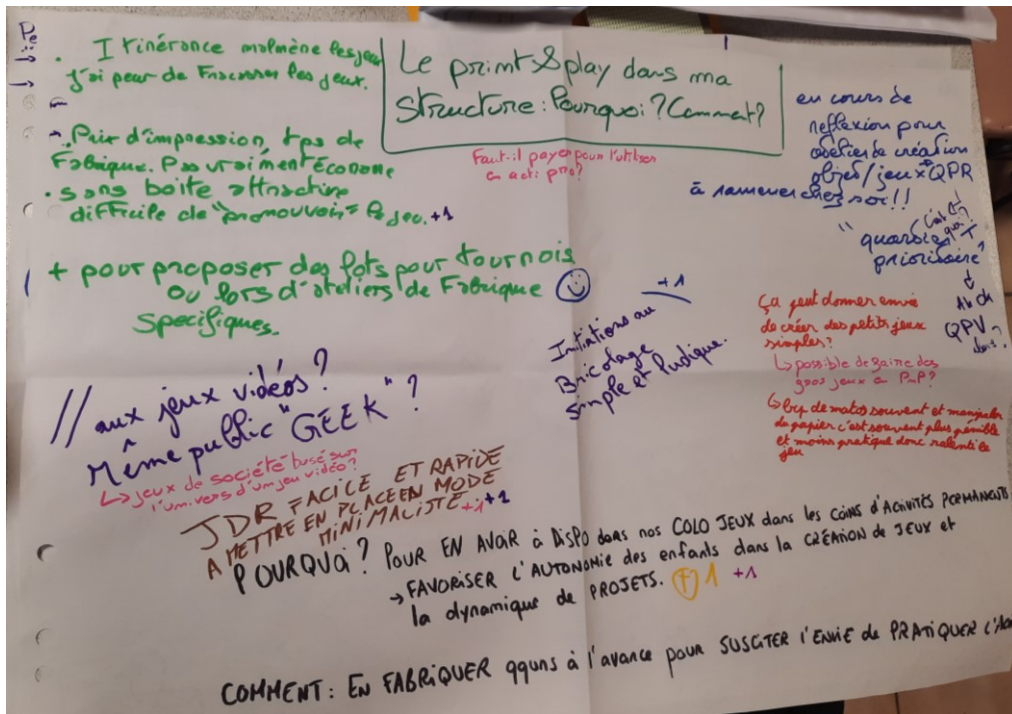 Le print & play dans ma
structure : Pourquoi ? Comment ?
Faut-il payer pour l'utiliser
en acti pro ?
. Itinérance malmène les jeux
j'ai peur de Fracasser les jeux.
Prix d'impression, tps de
Fabrique. Pas vraiment Econome
. sans boîte attractive
difficile de "promouvoir" le jeu. +1
+ pour proposer des lots pour tournois
ou lors d'ateliers de Fabrique
Specifiques.
en cours de
reflexion pour
atelier de création
objet/jeux QPR
à ramener chez soi !!
"quartier
prioritaire"
c'est
quoi ?
Ah ok
QPV
alors ?
+1
Initiations au
Bricolage
simple et ludique.
ça peut donner envie
de créer des petits jeux
simples ?
↳ possible de faire des
gros jeux en PnP ?
↳ bcp de matos souvent et manipuler
du papier c'est souvent plus pénible
et moins pratique donc ralenti le
jeu
// aux jeux vidéos ?
Même public "GEEK" ?
↳ jeux de société basé sur
l'univers d'un jeu vidéo ?
JDR FACILE ET RAPIDE
A METTRE EN PLACE EN MODE
MINIMALISTE +1 +1
POURQUOI ? POUR EN AVOIR à DISPO dans nos COLO JEUX dans les COINS d'ACTIVITÉS PERMANENTS
→ FAVORISER L'AUTONOMIE des enfants dans la CRÉATION de JEUX et
la dynamique de PROJETS. F 1 +1
COMMENT : EN FABRIQUER qquns à l'avance pour SUSCITER l'ENVIE de PRATIQUER